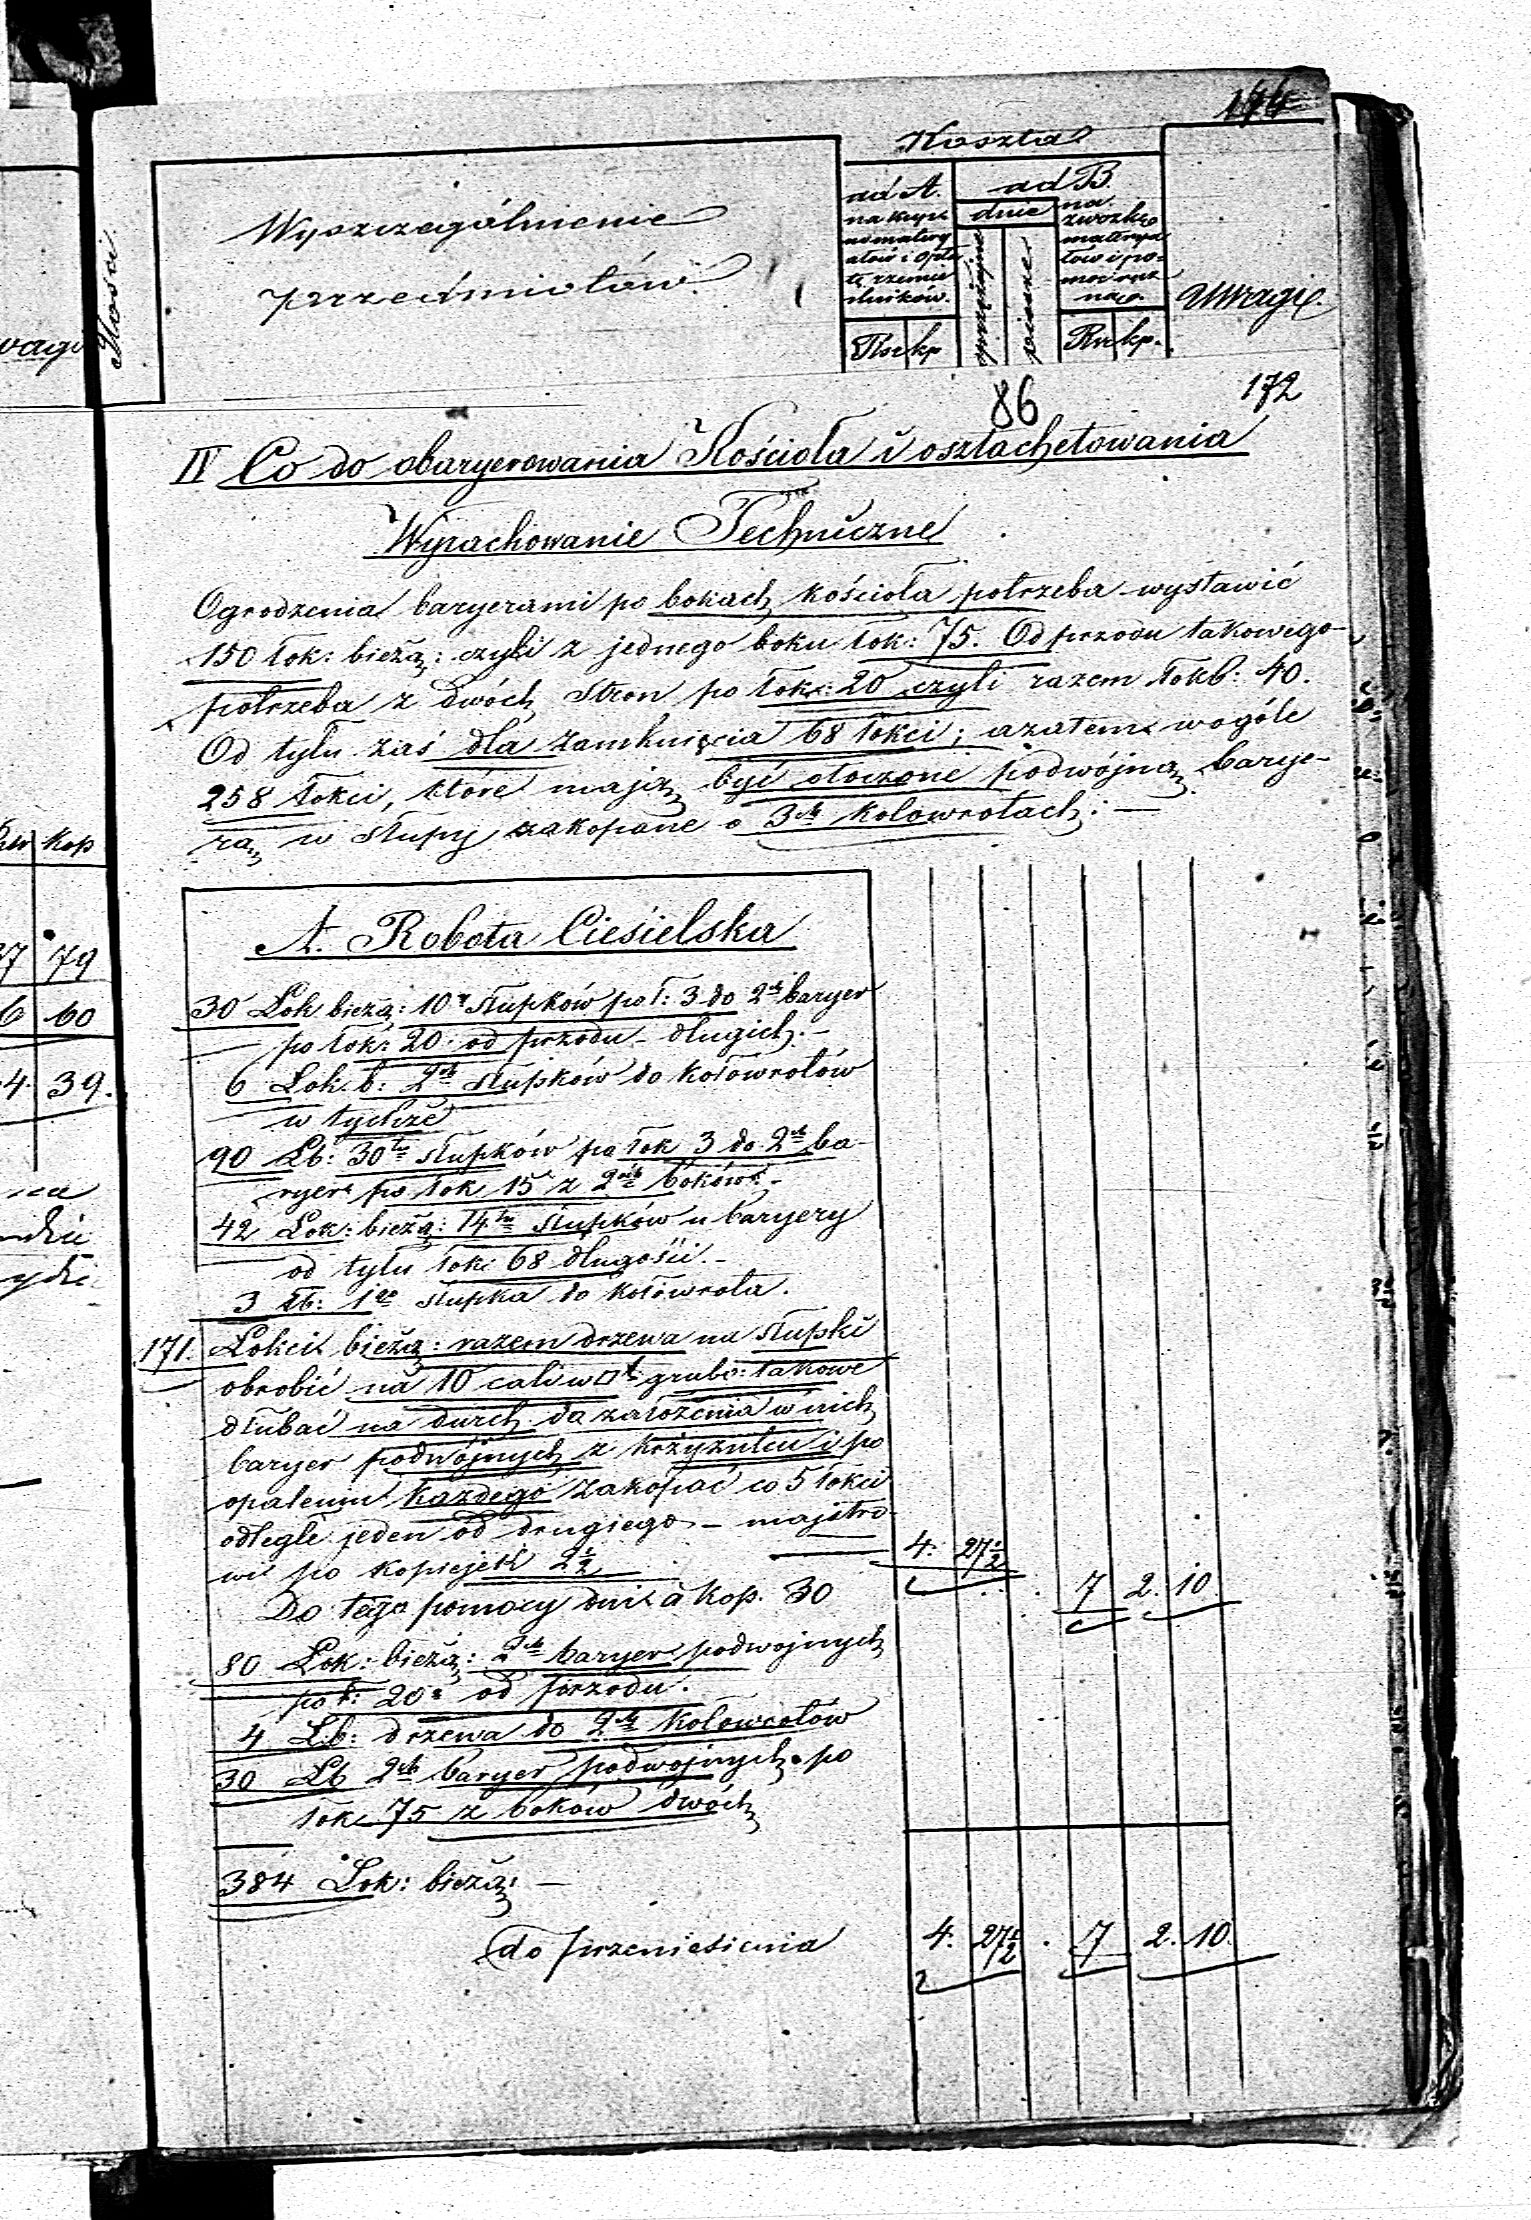 Ilości
Wyszczególnienie
przedmiotów
Koszta
ad A.
na kupno
materyałów i opłatę
rzemieślników.
Rsr kp
ad B.
dnie
sprzężajne
piesze
na zwózkę
materyałów i pomoc
ręczną.
Rsr kp.
Uwagi.
86
172
IV Co do obaryerowania Kościoła i osztachetowania
Wyrachowanie Techniczne
Ogrodzenia baryerami po bokach kościoła potrzeba wystawić
150 łok: bieżą: czyli z jednego boku łok: 75. Od przodu takowego
potrzeba z dwóch stron po łok: 20 czyli razem łokb: 40.
Od tyłu zaś dla zamknięcia 68 łokci; azatem wogóle
258 łokci, które mają być otoczone podwójną barye-
rą w słupy zakopane o 3ch kołowrotach: —
A. Robota Ciesielska
30 Łok bieżą: 10u słupków po ł: 3 do 2ch baryer
po łok: 20 od przodu długich. –
6 Łok b: 2ch słupków do kołowrotów
w tychże
90 Łb: 30tu słupków po łok 3 do 2ch ba-
ryer po łok 75 z 2ch boków –
42 Łok: bieżą: 14tu słupków u baryery
od tyłu łok: 68 długości. –
3 Łb: 1go słupka do kołowrota.
171. Łokci bieżą: razem drzewa na słupki
obrobić na 10 cali w □t grube: takowe
dłubać na durch do założenia w nich
baryer podwójnych z krzyżulcu i po
opaleniu każdego zakopać co 5 łokci
odległe jeden od drugiego – majstro-
wi po kopiejek 2½ 4. 27½
Do tego pomocy dni à kop. 30 7 2. 10
80 Łok: bieżą: 2ch baryer podwojnych
po ł: 20 od przodu.
4 Łb: drzewa do 2ch kołowrotów
30 Łb 2ch baryer podwojnych po
łok 75 z boków dwóch
384 Łok: bieżą: —
do przeniesienia 4. 27½ 7 2. 10.
kop
79
60
39.